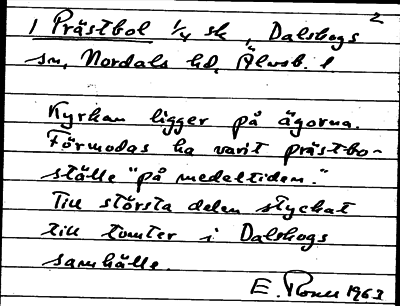 2
1 Prästbol 1/4 sk, Dalskogs
sn, Nordals hd, Älvsb. l
Kyrkan ligger på ägorna.
Förmodas ha varit prästbo-
ställe "på medeltiden."
Till största delen styckat
till tomter i Dalskogs
samhälle.
E. 1963